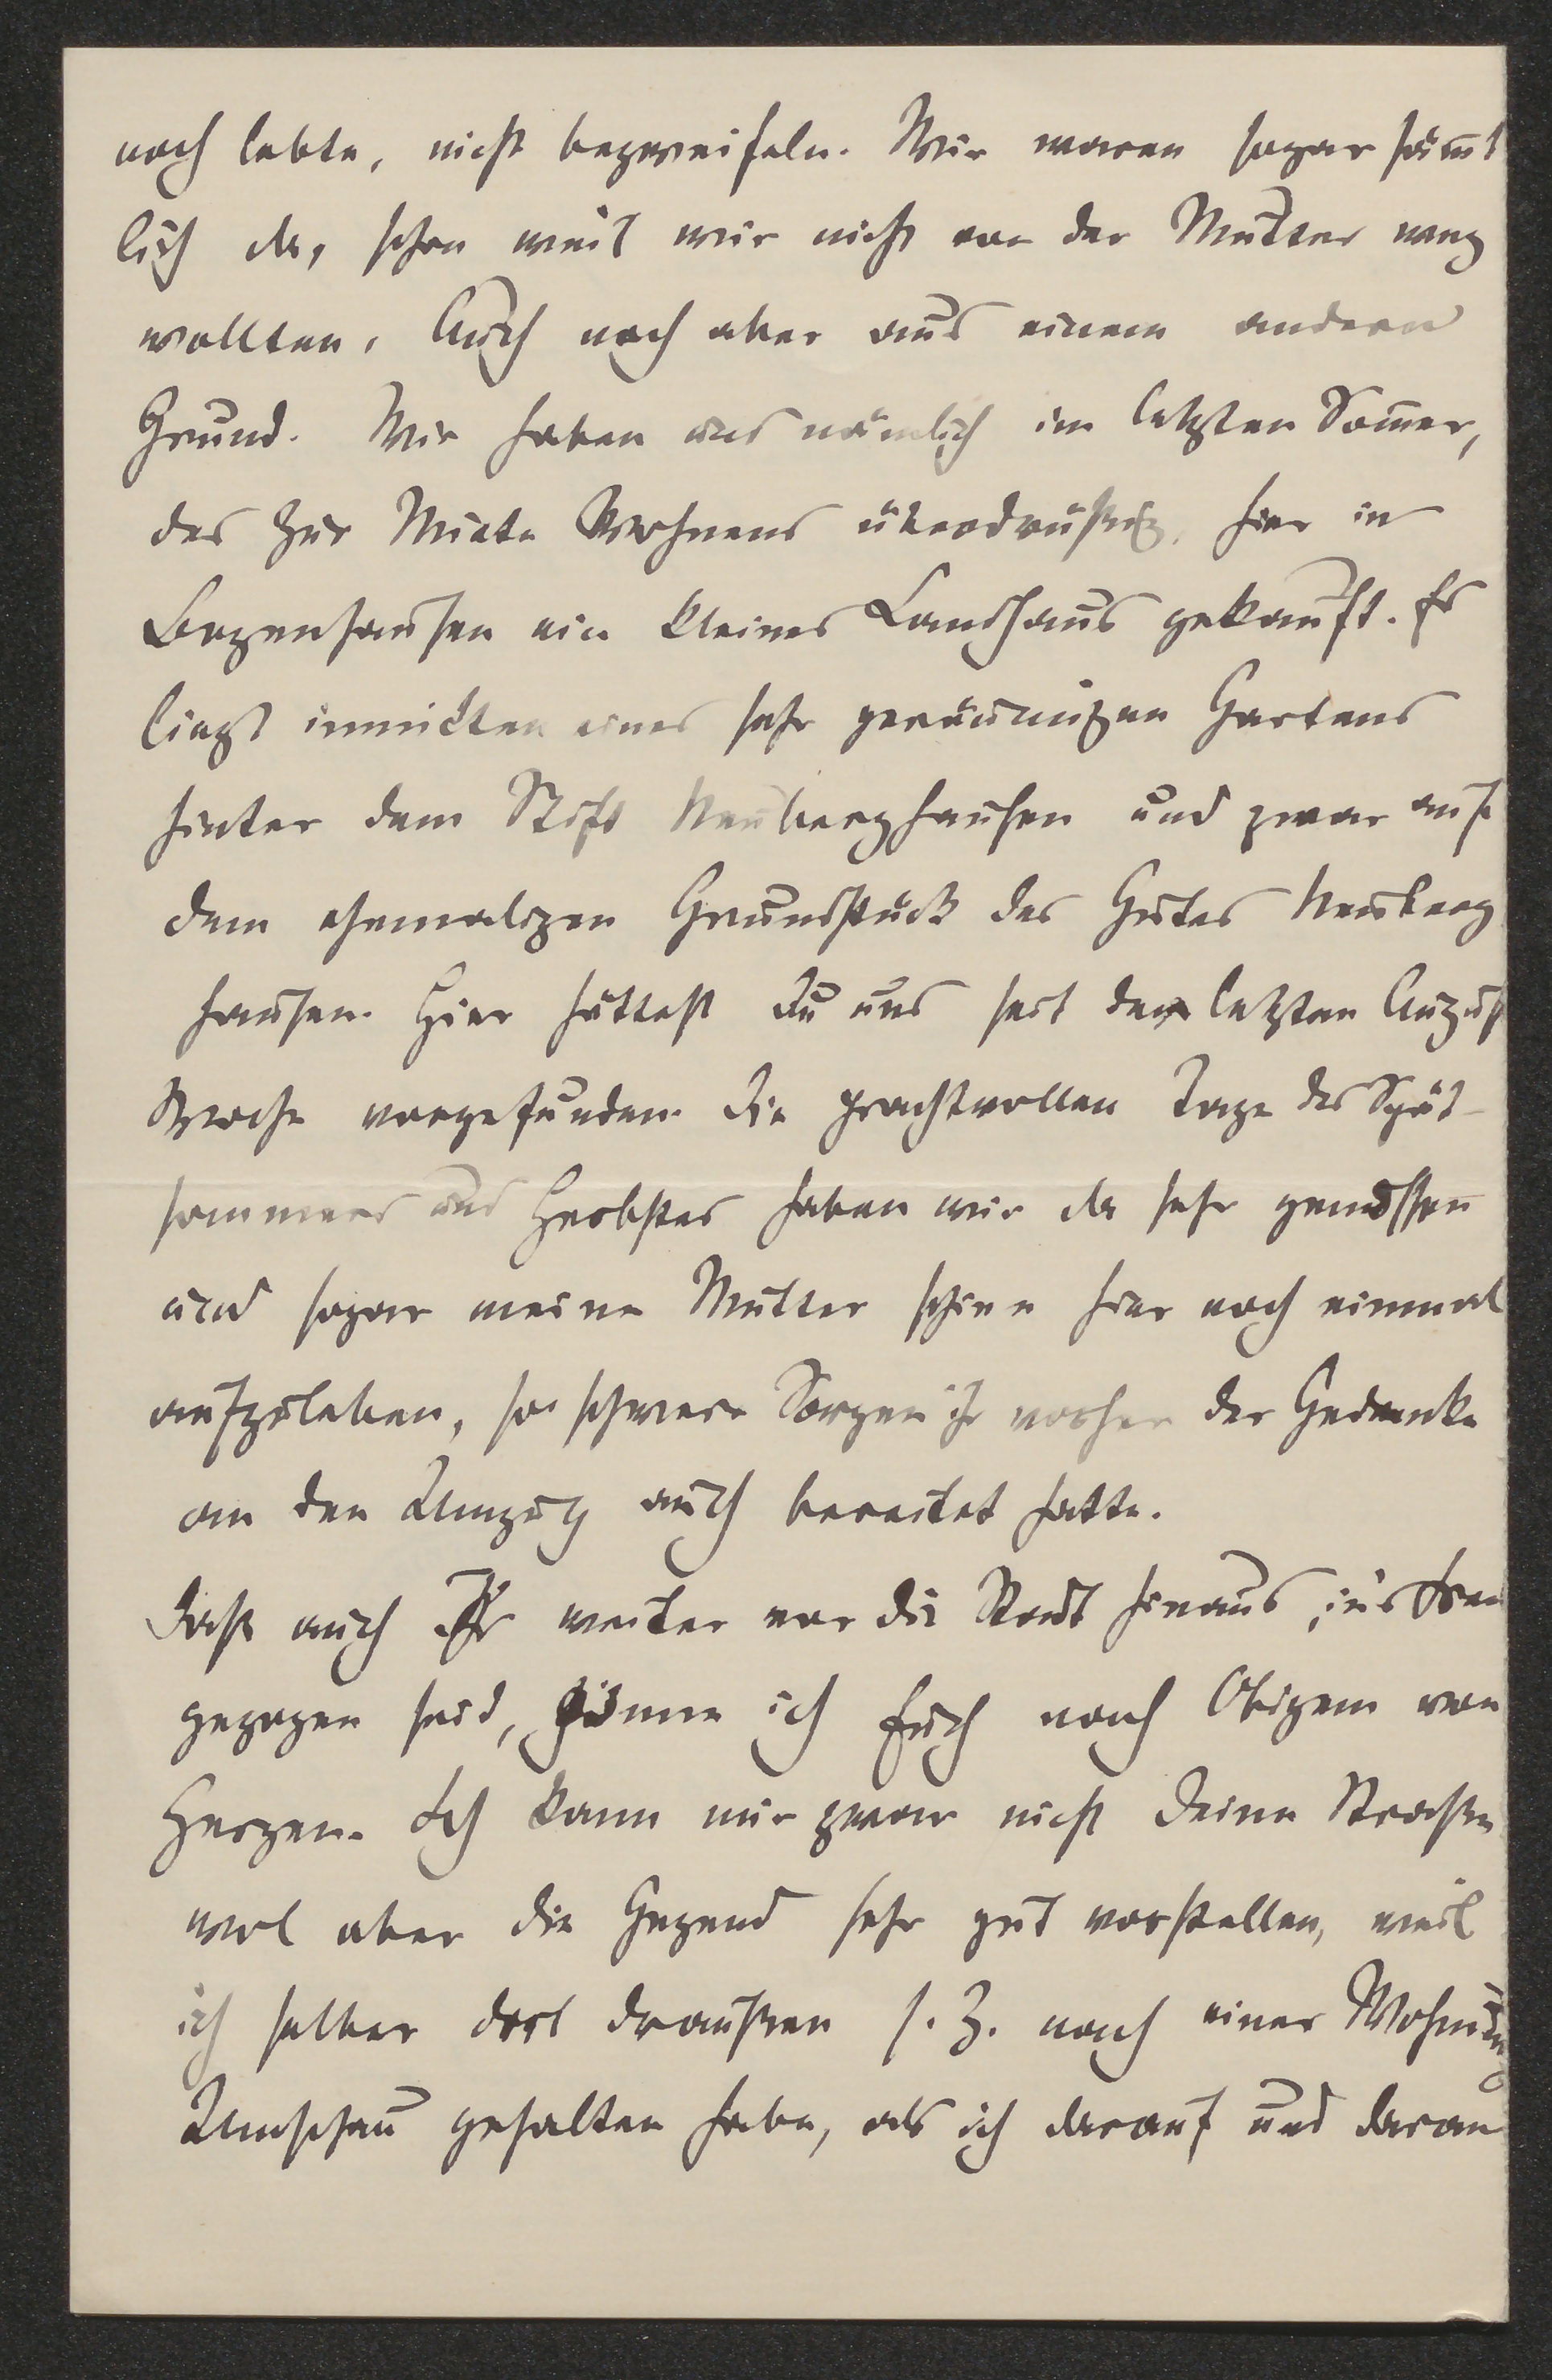 noch lebte, nicht bezweifeln. Wir waren sogar sämt
lich da, schon weil wir nicht von der Mutter weg
wollten, Auch noch aber aus einem andern
Grund. Wir haben uns nämlich im letzten Som̅er,
des zur Miete Wohnens überdrüßig, hier in
Bogenhausen ein kleines Landhaus gekauft. Es
liegt inmitten eines sehr geräumigen Gartens
hinter dem Stift Neuberghausen und zwar auf
dem ehemaligen Grundstück des Gutes Neuberg
hausen. Hier hättest Du uns seit der letzten August
Woche vorgefunden. Die prachtvollen Tage des Spät-
sommers und Herbstes haben wir da sehr genossen
und sogar meine Mutter schien hier noch einmal
aufzuleben, so schwere Sorgen ihr vorher der Gedanke
an den Umzug auch bereitet hatte.
Daß auch Ihr weiter vor die Stadt hinaus, ins Freie
gezogen seid, gönne ich Euch nach Obigem von
Herzen. Ich kann mir zwar nicht Deine Straße
wol aber die Gegend sehr gut vorstellen, weil
ich selber dort draußen s. Z. nach einer Wohnung
Umschau gehalten habe, als ich darauf und daran